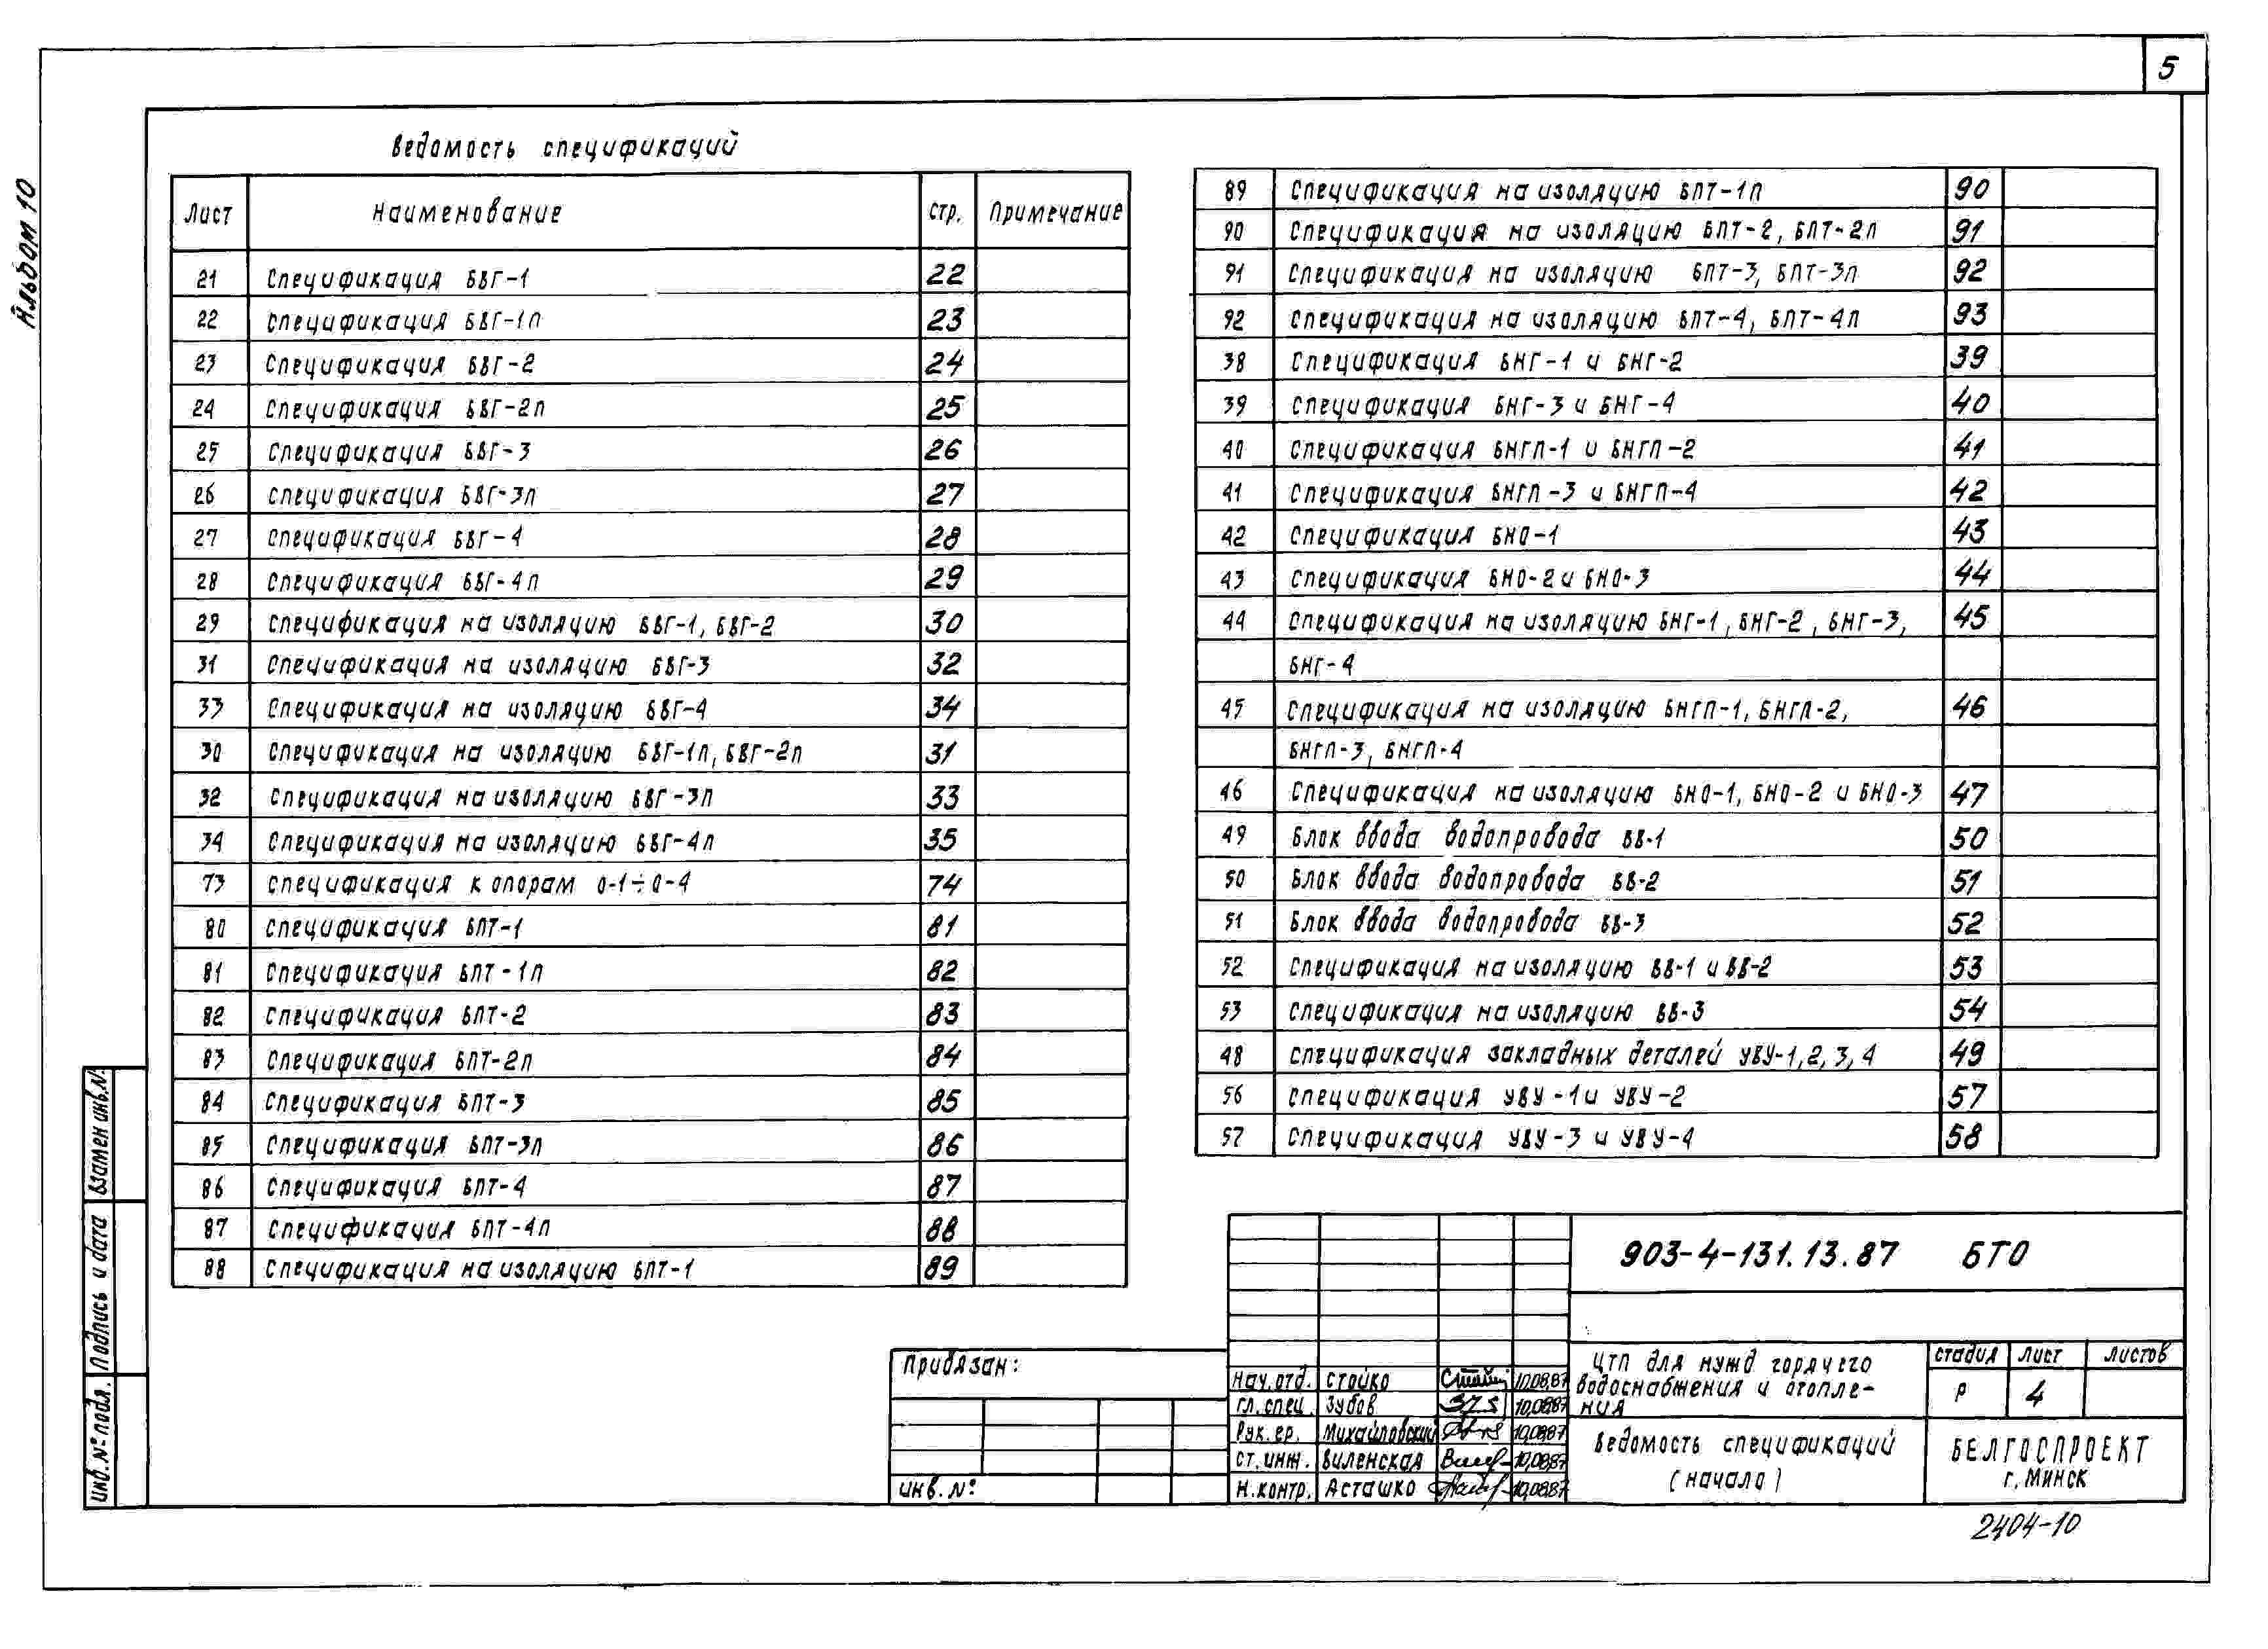 5
Альбом 10
Ведомость спецификаций
Лист Наименование Стр. Примечание
21 Спецификация БВГ-1 22
22 Спецификация БВГ-1п 23
23 Спецификация БВГ-2 24
24 Спецификация БВГ-2п 25
25 Спецификация БВГ-3 26
26 Спецификация БВГ-3п 27
27 Спецификация БВГ-4 28
28 Спецификация БВГ-4п 29
29 Спецификация на изоляцию БВГ-1, БВГ-2 30
31 Спецификация на изоляцию БВГ-3 32
33 Спецификация на изоляцию БВГ-4 34
30 Спецификация на изоляцию БВГ-1п, БВГ-2п 31
32 Спецификация на изоляцию БВГ-3п 33
34 Спецификация на изоляцию БВГ-4п 35
73 Спецификация к опорам О-1÷О-4 74
80 Спецификация БПТ-1 81
81 Спецификация БПТ-1п 82
82 Спецификация БПТ-2 83
83 Спецификация БПТ-2п 84
84 Спецификация БПТ-3 85
85 Спецификация БПТ-3п 86
86 Спецификация БПТ-4 87
87 Спецификация БПТ-4п 88
88 Спецификация на изоляцию БПТ-1 89
89 Спецификация на изоляцию БПТ-1п 90
90 Спецификация на изоляцию БПТ-2, БПТ-2п 91
91 Спецификация на изоляцию БПТ-3, БПТ-3п 92
92 Спецификация на изоляцию БПТ-4, БПТ-4п 93
38 Спецификация БНГ-1 и БНГ-2 39
39 Спецификация БНГ-3 и БНГ-4 40
40 Спецификация БНГП-1 и БНГП-2 41
41 Спецификация БНГП-3 и БНГП-4 42
42 Спецификация БНО-1 43
43 Спецификация БНО-2 и БНО-3 44
44 Спецификация на изоляцию БНГ-1, БНГ-2, БНГ-3, 45
БНГ-4
45 Спецификация на изоляцию БНГП-1, БНГП-2, 46
БНГП-3, БНГП-4
46 Спецификация на изоляцию БНО-1, БНО-2 и БНО-3 47
49 Блок ввода водопровода БВ-1 50
50 Блок ввода водопровода БВ-2 51
51 Блок ввода водопровода БВ-3 52
52 Спецификация на изоляцию БВ-1 и БВ-2 53
53 Спецификация на изоляцию БВ-3 54
48 Спецификация закладных деталей УВУ-1,2,3,4 49
56 Спецификация УВУ-1 и УВУ-2 57
57 Спецификация УВУ-3 и УВУ-4 58
Взамен инв.N:
Подпись и дата
Инв.№ подл.
Привязан:
Инв.№
903-4-131.13.87 БТО
Нач.отд. Стойко 10.08.87
Гл.спец. Зубов 10.08.87
Рук.гр. Михайловский 10.08.87
Ст.инж. Виленская 10.08.87
Н.контр. Асташко 10.08.87
ЦТП для нужд горячего
водоснабжения и отопле-
ния
Стадия Лист Листов
Р 4
Ведомость спецификаций
(начало)
БЕЛГОСПРОЕКТ
г.Минск
2404-10